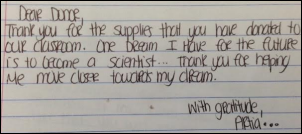 Dear Donor,
Thank you for the supplies that you have donated to
our classroom. One Dream I have for the future
is to become a scientist... Thank you for helping
me move closer towards my dream.
With gratitude,